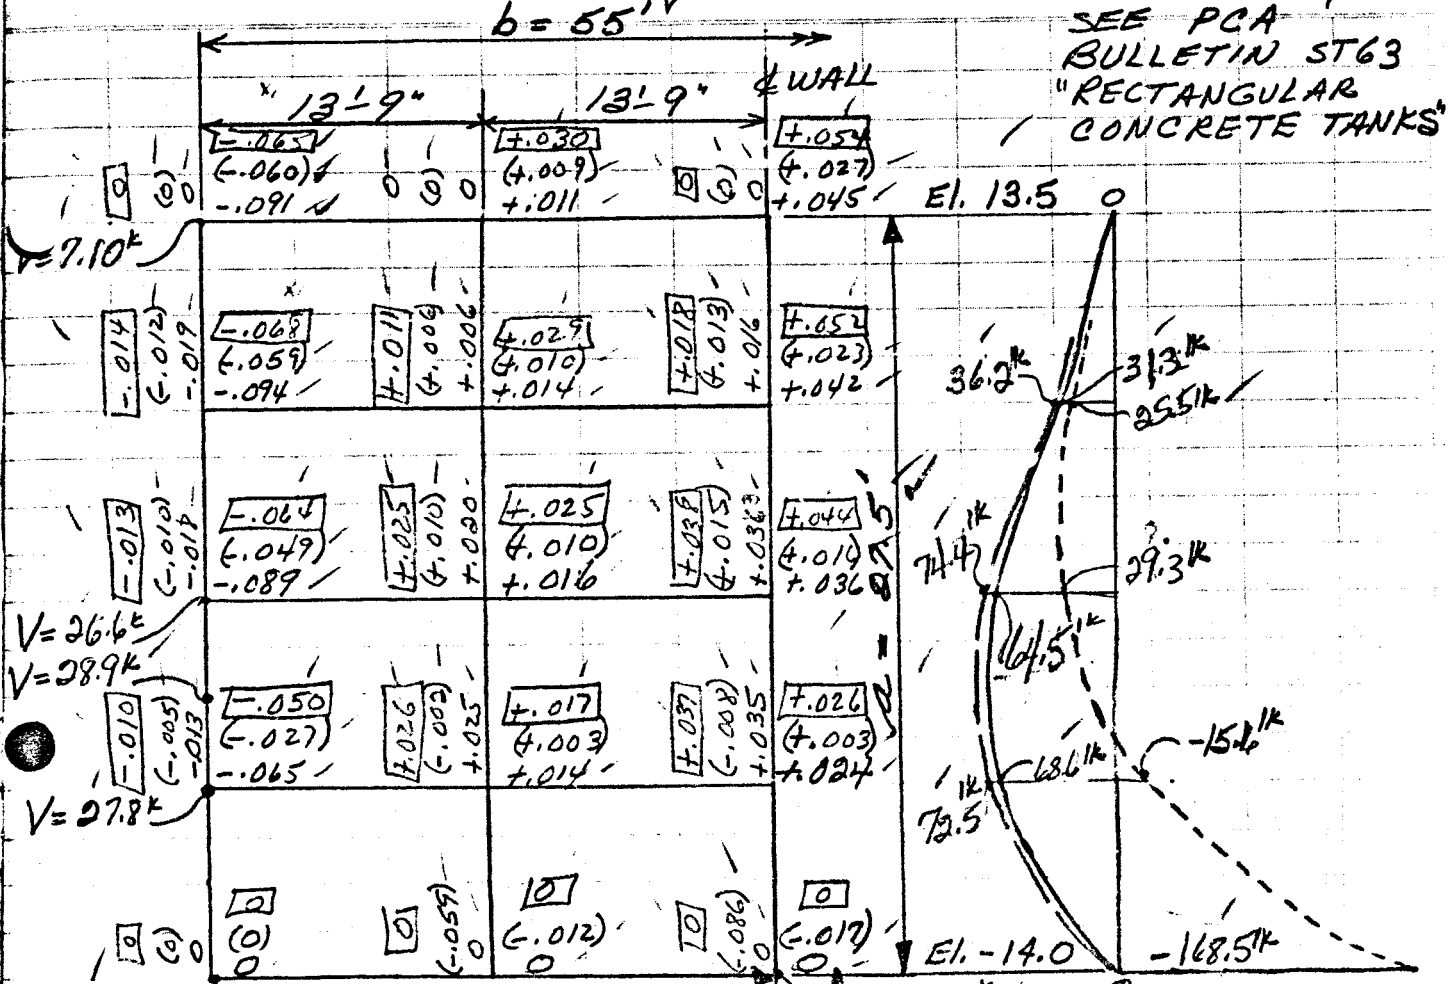 b = 55'
SEE PCA
BULLETIN ST63
"RECTANGULAR
CONCRETE TANKS"
13'-9"
13'-9"
℄ WALL
0
(0)
0
-.065
(-.060)
-.091
0
(0)
0
+.030
(+.009)
+.011
0
(0)
0
+.054
(+.027)
+.045
El. 13.5
0
V=7.10k
-.014
(-.012)
-.019
-.068
(-.059)
-.094
+.011
(+.006)
+.006
+.029
(+.010)
+.014
+.018
(+.013)
+.016
+.052
(+.023)
+.042
36.2'k
31.3'k
25.5'k
-.013
(-.010)
-.018
(-.049)
-.089
+.025
(+.010)
+.020
+.025
(+.010)
+.016
+.038
(+.015)
+.036
+.044
+.036
a = 27.5'
74.4'k
29.3'k
64.5'k
V=26.6k
V=28.9k
-.010
(-.005)
-.013
-.050
(-.027)
-.065
+.026
(-.002)
+.025
+.017
(+.003)
+.014
+.037
(-.008)
+.035
+.026
(+.003)
+.024
68.6'k
72.5'k
V=27.8k
0
(0)
0
0
(0)
0
0
(-.059)
0
0
(-.012)
0
0
(-.086)
0
0
(-.017)
0
El. -14.0
-168.5'k